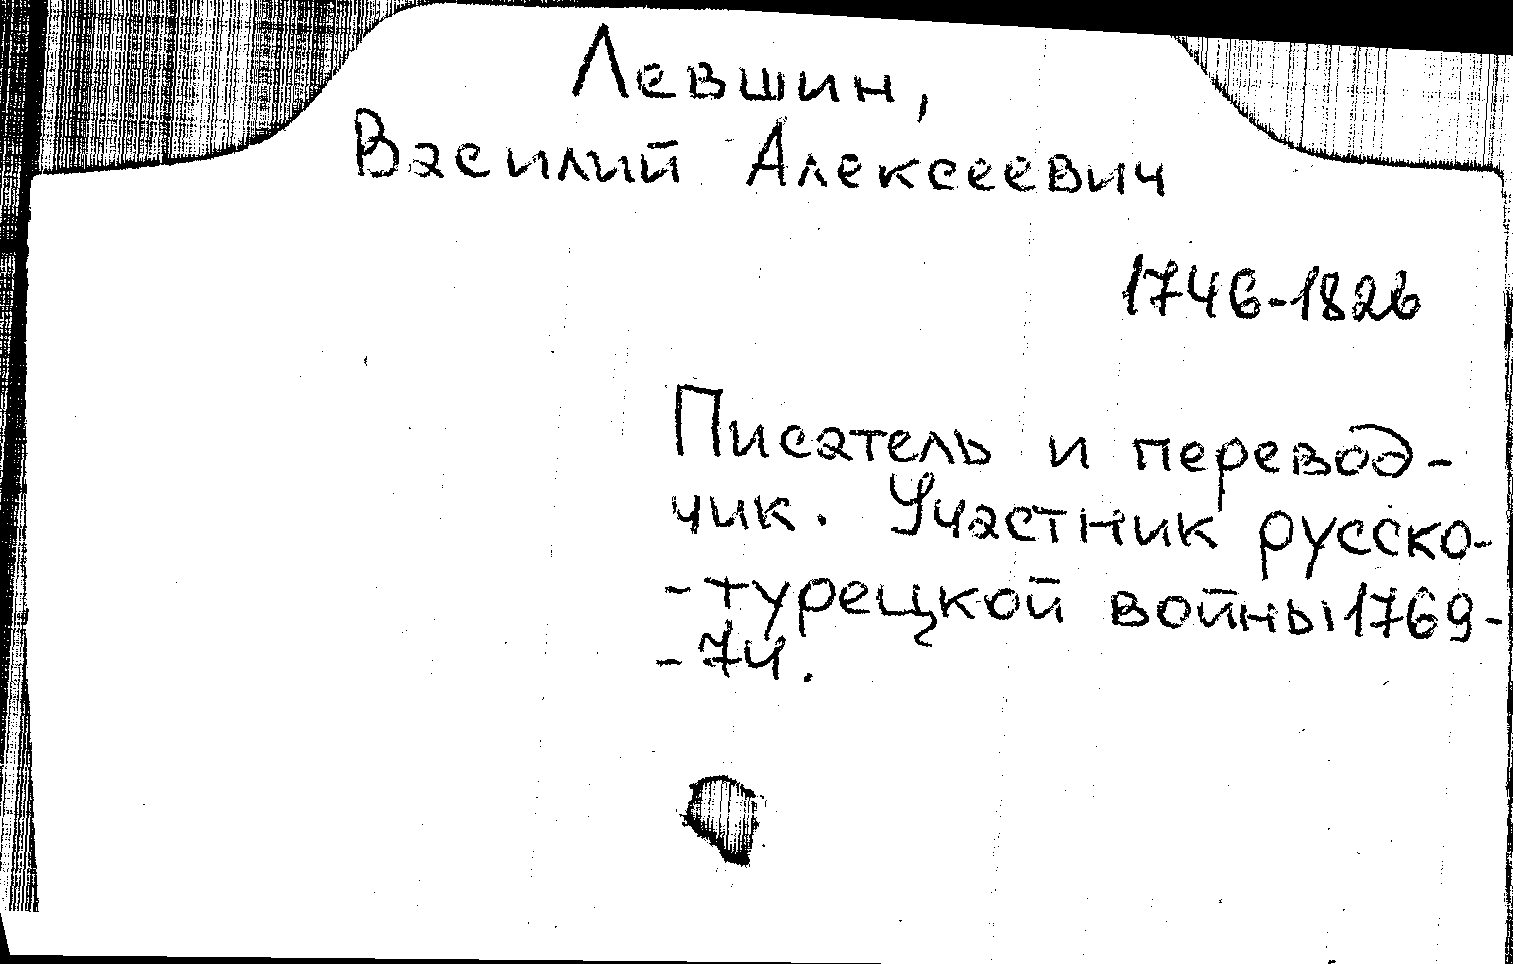 Левшин,
Василий Алексеевич
1746-1826
Писатель и перевод-
чик. Участник русско-
-турецкой войны 1769-
-74.